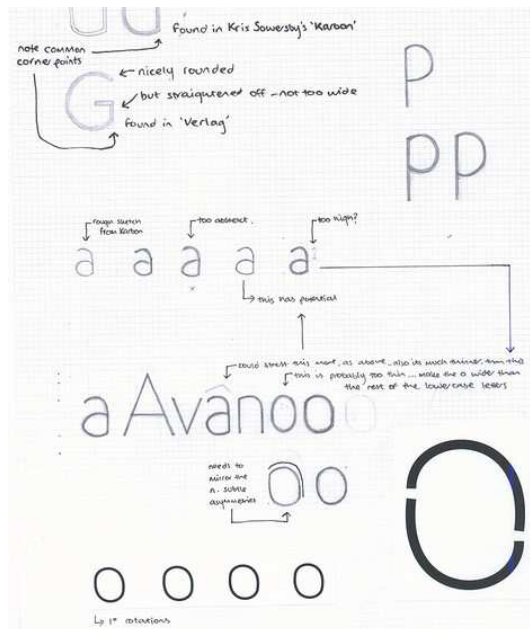 found in Kris Sowersby's 'Karbon'
note common
corner points
nicely rounded
G
but straightened off - not too wide
found in 'Verlag'
P
PP
rough sketch
from Karbon
too abstract.
too high?
a a a a a
this has potential
could stress this more, as above, also its much thinner than this
this is probably too thin... make the o wider than
the rest of the lowercase letters
a Avanoo
needs to
mirror the
n. subtle
asymmetries
o o
O
o o o o
1° rotations